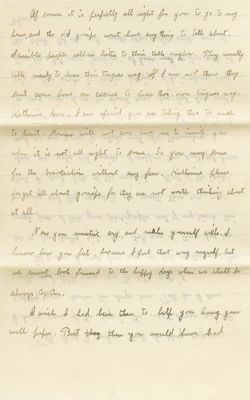 Of course it is perfectly all right for you to go to my
home, and the old gossips won't have any thing to talk about.
Sensible people seldom listen to their talk maybe. They usually
talk merely to hear their tongues wag. If I am not there they
don't even have an excuse to hear their own tongues wag.
Katherine dear, I am afraid you are taking that to much
to heart. Mamma will not ever have me to invite you
when it is not all right to come. So you may come
for the vacation without any fear. Katherine please
forget all about gossips for they are not worth thinking about
at all.
Now you mustn't cry and make yourself sick. I
know how you feel, because I feel that way myself, but
we must look forward to the happy days when we shall be
always together.
I wish I had been there to help you hang your
wall paper. But then you would have had